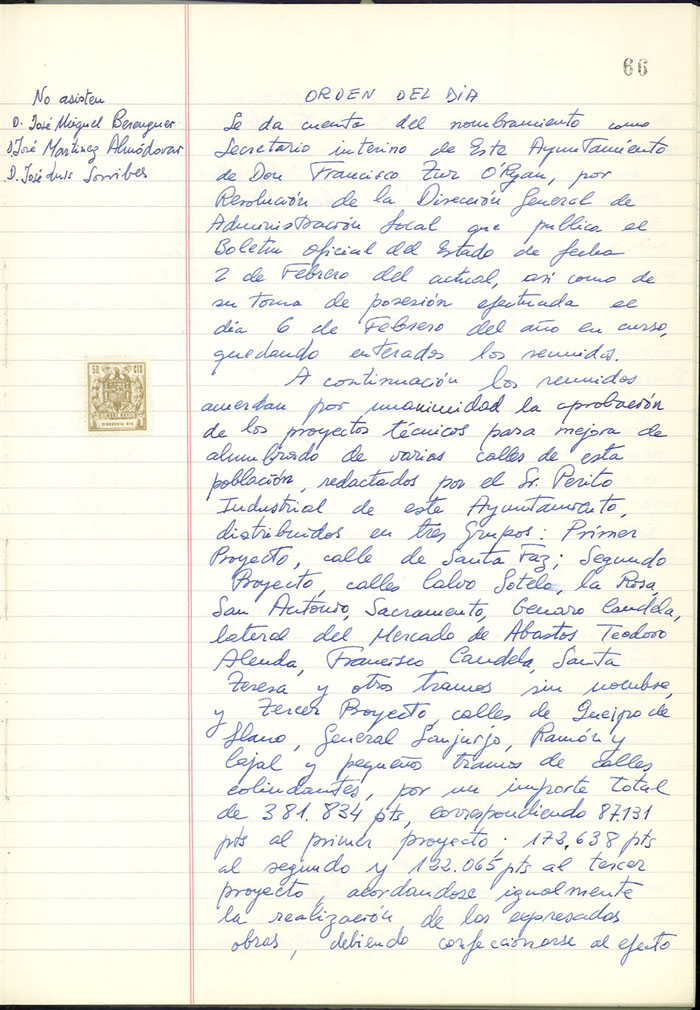 66
No asisten
D. José Miguel Berenguer
D. José Martinez Almódovar
D. José Luis Sorribes
50 CTS
ORDEN DEL DÍA
Se da cuenta del nombramiento como
Secretario interino de Este Ayuntamiento
de Don Francisco Zur O'Ryan, por
Resolución de la Dirección General de
Administración Local que publica el
Boletin Oficial del Estado de fecha
2 de Febrero del actual, asi como de
su toma de posesión efectuada el
día 6 de Febrero del año en curso,
quedando enterados los reunidos.
A continuación los reunidos
acuerdan por unanimidad la aprobación
de los proyectos técnicos para mejora de
alumbrado de varias calles de esta
población, redactados por el Sr. Perito
Industrial de este Ayuntamiento,
distribuidos en tres Grupos: Primer
Proyecto, calle de Santa Faz; Segundo
Proyecto, calles Calvo Sotelo, la Rosa,
San António, Sacramento, Genaro Candela,
lateral del Mercado de Abastos Teodoro
Alenda, Francisco Candela, Santa
Teresa y otros tramos sin nombre,
y Tercer Proyecto, calles de Queipo de
Llano, General Sanjurjo, Ramón y
Cajal y pequeños tramos de calles
colindantes, por un importe total
de 381.834 pts, correspondiendo 87.131
pts al primer proyecto; 172,638 pts
al segundo y 122.065 pts al tercer
proyecto, acordandose igualmente
la realización de las expresadas
obras, debiendo confeccionarse al efecto